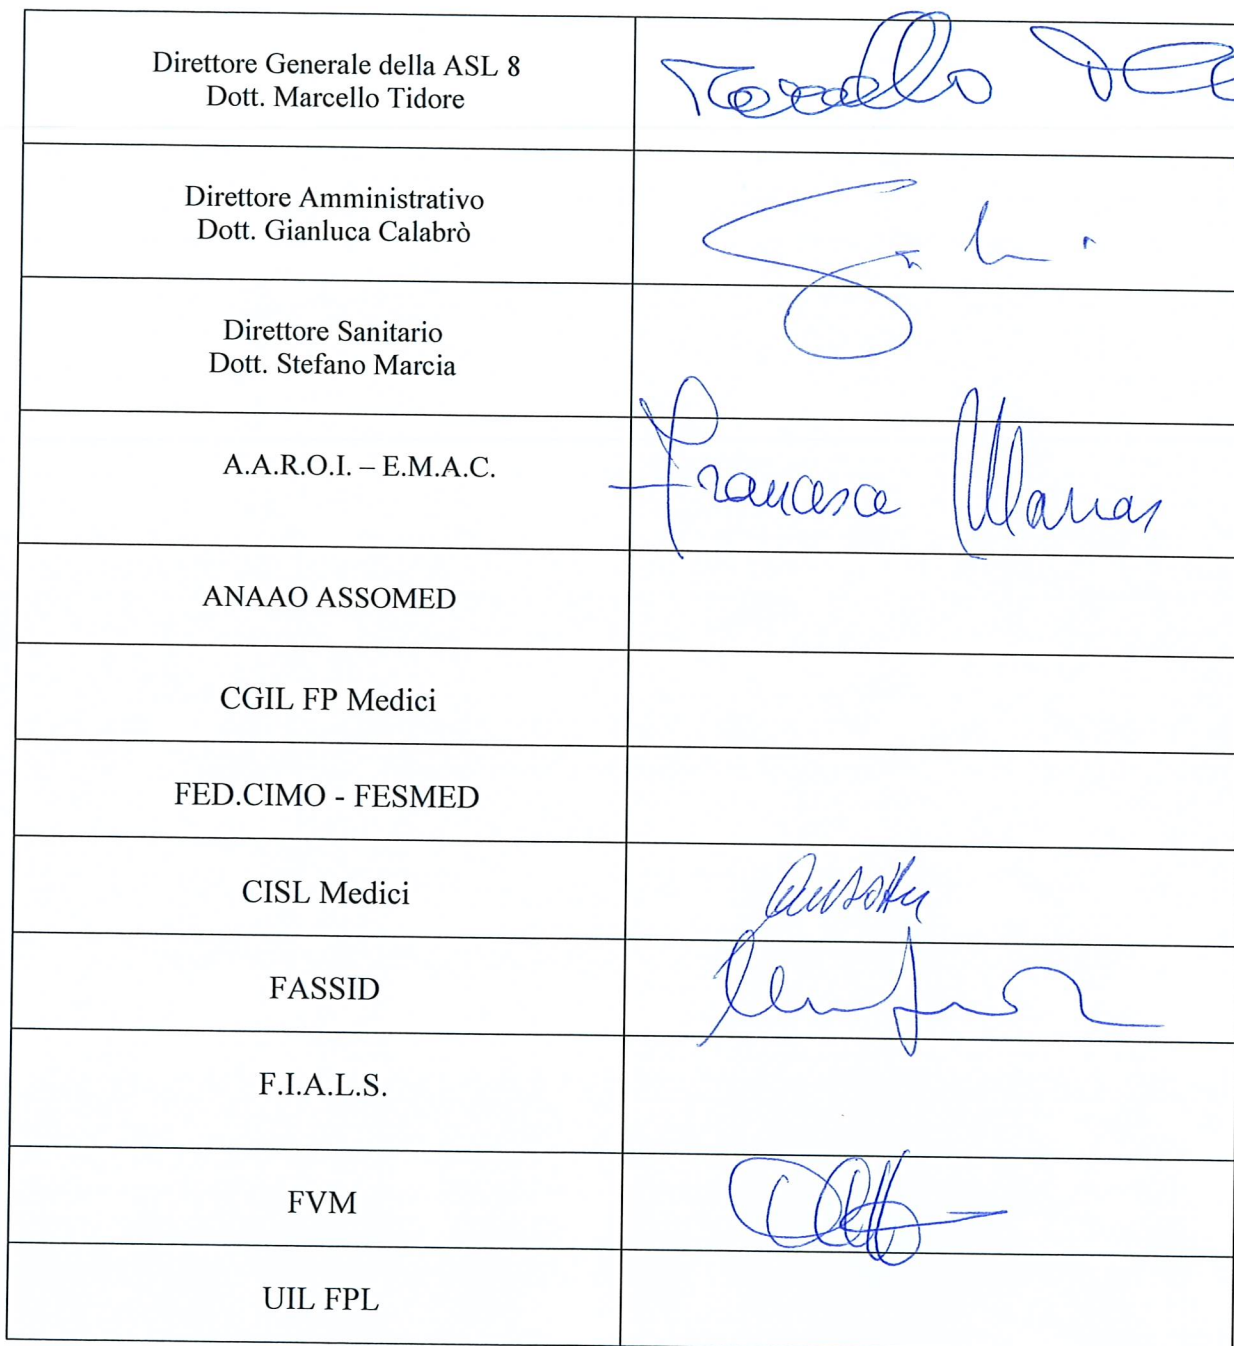 Direttore Generale della ASL 8
Dott. Marcello Tidore
Direttore Amministrativo
Dott. Gianluca Calabrò
Direttore Sanitario
Dott. Stefano Marcia
A.A.R.O.I. – E.M.A.C.
Francesca
ANAAO ASSOMED
CGIL FP Medici
FED.CIMO - FESMED
CISL Medici
FASSID
F.I.A.L.S.
FVM
UIL FPL